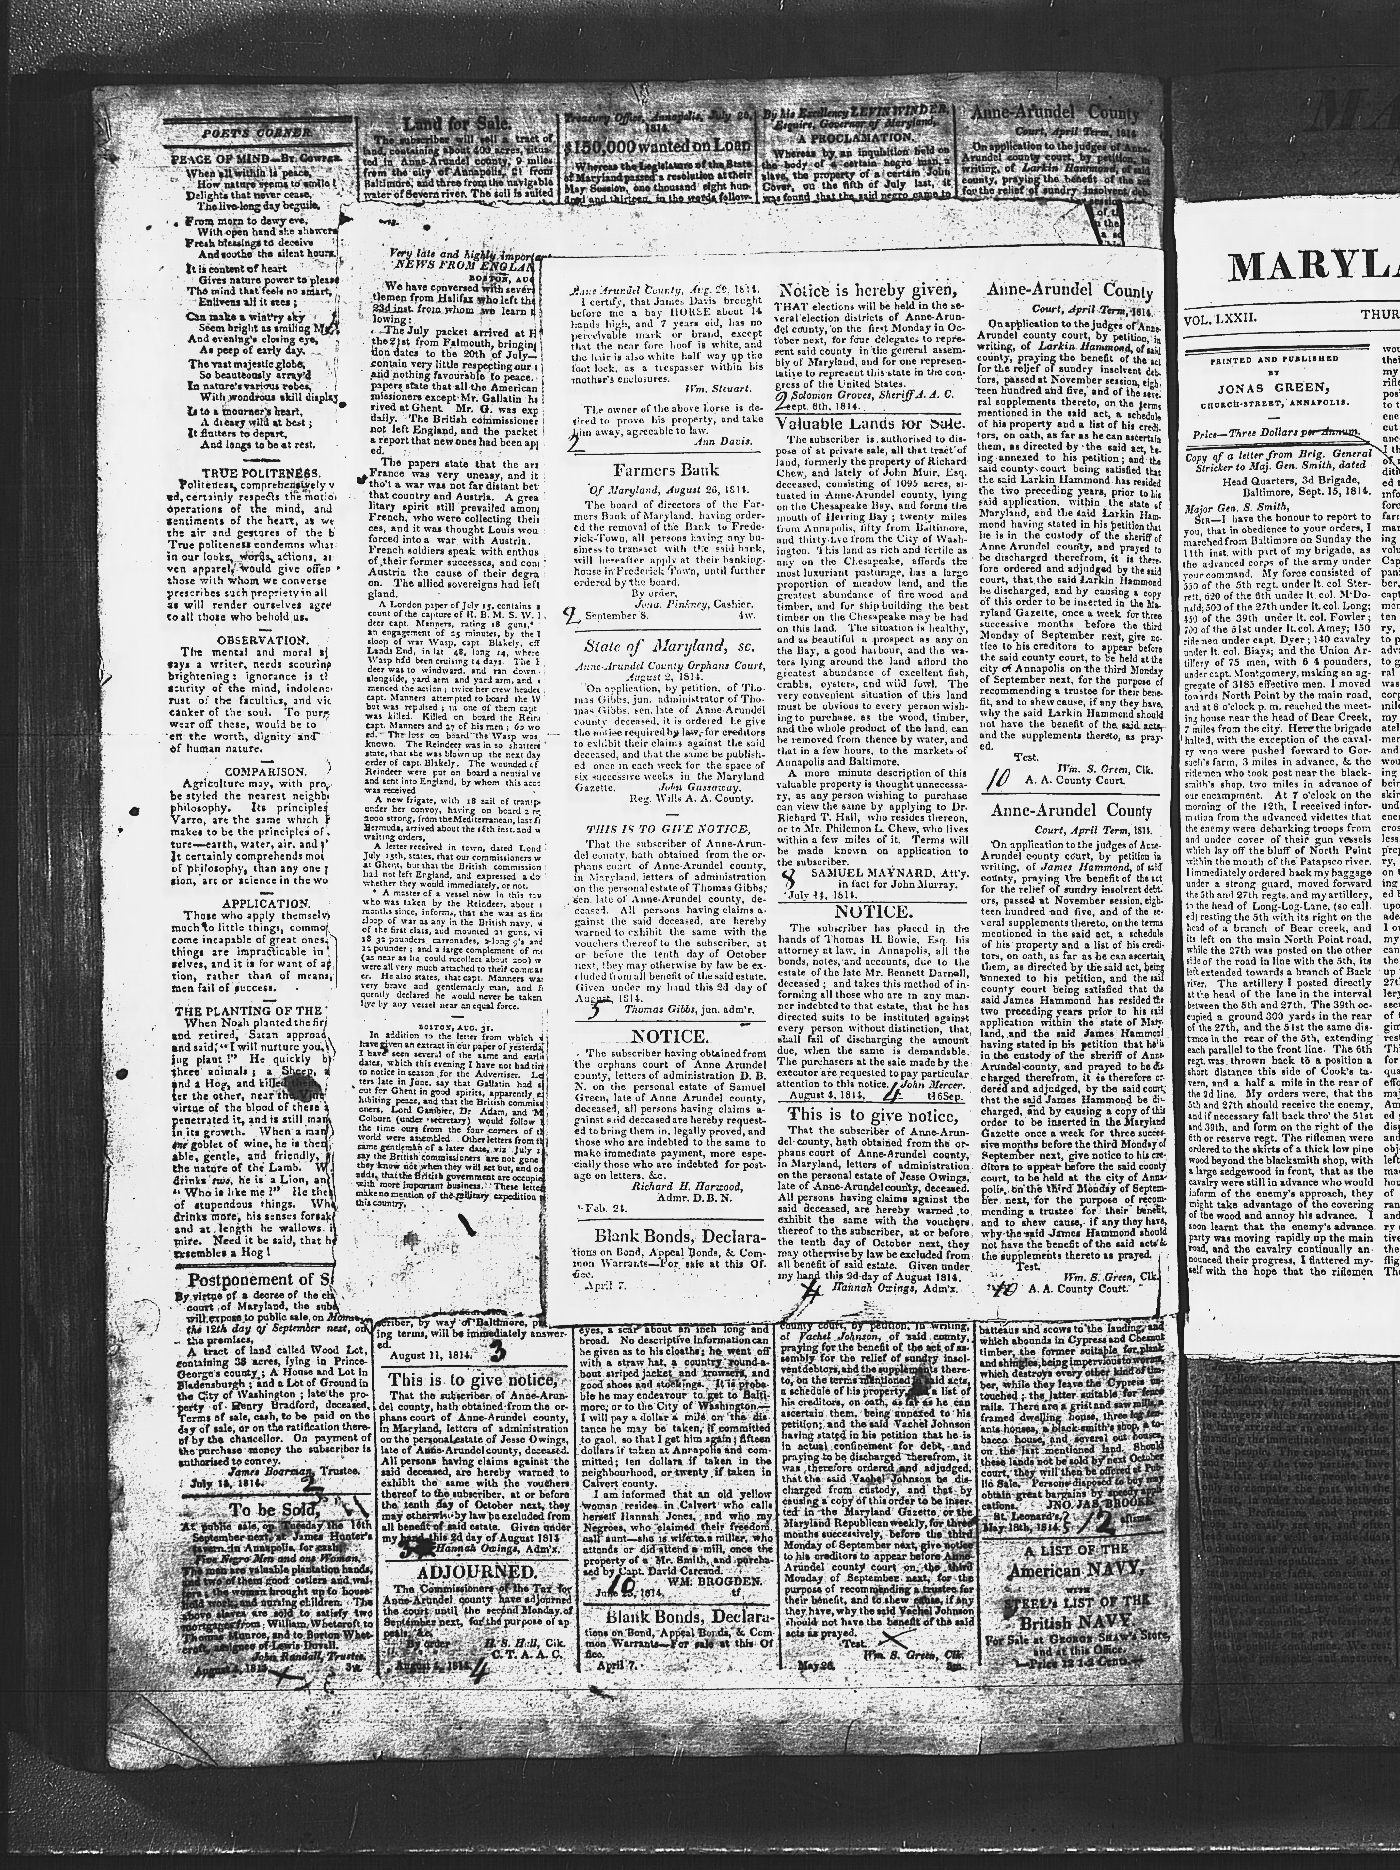 POET'S CORNER.
PEACE OF MIND—BY. COWPER.
When all within is peace,
How nature seems to smile!
Delights that never cease,
The live-long day beguile.
From morn to dewy eve,
With open hand she showers
Fresh blessings to deceive
And soothe the silent hours.
It is content of heart
Gives nature power to please
The mind that feels no smart,
Enlivens all it sees;
Can make a wint'ry sky
Seem bright as smiling
And evening's closing eye,
As peep of early day.
The vast majestic globe,
So beauteously array'd
In nature's various robes,
With wondrous skill display
Is to a mourner's heart,
A dreary wild at best;
It flutters to depart,
And longs to be at rest.
TRUE POLITENESS.
Politeness, comprehensively v
ed, certainly respects the motio
operations of the mind, and
sentiments of the heart, as we
the air and gestures of the b
True politeness condemns what
in our looks, words, actions, ar
ven apparel, would give offen
those with whom we converse
prescribes such propriety in all
as will render ourselves agre
to all those who behold us.
OBSERVATION.
The mental and moral
says a writer, needs scouring
brightening: ignorance is th
scurity of the mind, indolenc
rust of the faculties, and vic
canker of the soul. To purg
wear off these, would be to
en the worth, dignity and
of human nature.
COMPARISON.
Agriculture may, with pro
be styled the nearest neighb
philosophy. Its principles
Varro, are the same which
makes to be the principles of
ture—earth, water, air, and
It certainly comprehends mor
of philosophy, than any one
sion, art or science in the wo
APPLICATION.
Those who apply themselv
much to little things, commo
come incapable of great ones.
things are impracticable in
selves, and it is for want of ap
tion, rather than of means,
men fail of success.
THE PLANTING OF THE
When Noah planted the fir
and retired, Satan approa
and said, "I will nurture you,
ing plant!" He quickly b
three animals; a Sheep, a
and a Hog, and killed them
ter the other, near the Vine
virtue of the blood of these a
penetrated it, and is still man
in its growth. When a man
one goblet of wine, he is then
able, gentle, and friendly,
the nature of the Lamb. W
drinks two, he is a Lion, and
" Who is like me!" He the
of stupendous things. Whe
drinks more, his senses forsak
and at length he wallows i
mire. Need it be said, that he
resembles a Hog!
Postponement of S
By virtue of a decree of the ch
court of Maryland, the subs
will expose to public sale, on Monday
the 12th day of September next, on
the premises,
A tract of land called Wood Lot,
containing 38 acres, lying in Prince-
George's county; A House and Lot in
Bladensburgh; and a Lot of Ground in
the City of Washington; late the pro-
perty of Henry Bradford, deceased.
Terms of sale, cash, to be paid on the
day of sale, or on the ratification there-
of by the chancellor. On payment of
the purchase money the subscriber is
authorised to convey.
James Boarman, Trustee.
July 14, 1814.
To be Sold,
At public sale, on Tuesday the 16th
September next, at James Hunter's
tavern in Annapolis, for cash,
Five Negro Men and one Woman,
The men are valuable plantation hands,
and two of them good ostlers and wai-
ters, the woman brought up to house-
hold work, and nursing children. The
above slaves are sold to satisfy two
mortgages from William Whetcroft to
Thomas Munroe, and to Burton Whet-
croft, assignee of Lewis Duvall.
John Randall, Trustee.
3w.
Land for Sale.
The subscriber will sell a tract of
land, containing about 400 acres, situa-
ted in Anne-Arundel county, 9 miles
from the city of Annapolis, 21 from
Baltimore, and three from the navigable
water of Severn river. The soil is suited
Very late and highly important
NEWS FROM ENGLAN
BOSTON, AUG
We have conversed with sever
tlemen from Halifax who left the
23d inst. from whom we learn
lowing:
The July packet arrived at H
the 21st from Falmouth, bringing
don dates to the 20th of July—
contain very little respecting our
and nothing favourable to peace.
papers state that all the American
missioners except Mr. Gallatin ha
rived at Ghent. Mr. G. was exp
daily. The British commissioner
not left England, and the packet
a report that new ones had been app
ed.
The papers state that the arm
France was very uneasy, and it
tho't a war was not far distant bet
that country and Austria. A grea
litary spirit still prevailed among
French, who were collecting their
ces, and it was thought Louis wou
forced into a war with Austria.
French soldiers speak with enthus
of their former successes, and con
Austria the cause of their degra
on. The allied sovereigns had left
gland.
A London paper of July 15, contains a
count of the capture of H. B. M. S. W.
deer capt. Manners, rating 18 guns,
an engagement of 25 minutes, by the
sloop of war Wasp, capt. Blakely, off
Lands End, in lat. 48, long 14, where
Wasp had been cruising 14 days. The
deer was to windward, and ran down
alongside, yard arm and yard arm, and
menced the action; twice her crew headed
capt. Manners attempted to board the W
but was repulsed; in one of them capt
was killed. Killed on board the Rein
capt. Manners and 27 of his men; 60 wo
ed. The loss on board the Wasp was
known. The Reindeer was in so shattere
state, that she was blown up the next day
order of capt. Blakely. The wounded of
Reindeer were put on board a neutral ve
and sent into England, by whom this acc
was received
A new frigate, with 18 sail of transp
under her convoy, having on board a re
2000 strong, from the Mediterranean, last fr
Bermuda, arrived about the 18th inst. and w
waiting orders.
A letter received in town, dated Lond
July 15th, states, that our commissioners w
at Ghent, but that the British commission
had not left England, and expressed a do
whether they would immediately, or not.
A master of a vessel now in this tow
who was taken by the Reindeer, about
months since, informs, that she was as fine
sloop of war as any in the British navy,
of the first class, and mounted 21 guns, vi
18 32 pounders carronades, 2 long 9's and
12 pounder; and a large complement of me
(as near as he could recollect about 200) w
were all very much attached to their comma
er. He also states, that capt. Manners was
very brave and gentlemanly man, and fr
quently declared he would never be taken
by any vessel near an equal force.
BOSTON, AUG. 31.
In addition to the letter from which
have given an extract in our paper of yesterda
I have seen several of the same and earlie
dates, which this evening I have not had tim
to notice in season for the Advertiser. Let
ters late in June, say that Gallatin had s
for Ghent in good spirits, apparently
hibiting peace, and that the British commiss
oners, Lord Gambier, Dr. Adam, and M
Colburn (under secretary) would follow
the time ours from the four corners of th
world were assembled. Other letters from th
same gentleman of a later date, viz July
say the British commissioners are not gone
they know not when they will set but, and on
adds, that the British government are occupie
with more important business." These letters
make no mention of the military expedition
this country.
criber, by way of Baltimore, pr
ing terms, will be immediately answer-
ed.
August 11, 1814. 3
This is to give notice,
That the subscriber of Anne-Arun-
del county, hath obtained from the or-
phans court of Anne-Arundel county,
in Maryland, letters of administration
on the personal estate of Jesse Owings,
late of Anne-Arundel county, deceased.
All persons having claims against the
said deceased, are hereby warned to
exhibit the same with the vouchers
thereof to the subscriber, at or before
the tenth day of October next, they
may otherwise by law be excluded from
all benefit of said estate. Given under
my hand this 2d day of August 1814
Hannah Owings, Adm'x.
ADJOURNED.
The Commissioners of the Tax for
Anne-Arundel county have adjourned
the court until the second Monday of
September next, for the purpose of ap-
peals, &c.
By order H. S. Hall, Clk.
C. T. A. A. C.
4
Treasury Office, Annapolis, July 26,
1814.
$150,000 wanted on Loan
Whereas the Legislature of the State
of Maryland passed a resolution at their
May Session, one thousand eight hun-
dred and thirteen, in the words follow-
Anne Arundel County, Aug. 29, 1814.
I certify, that James Davis brought
before me a bay HORSE about 14
hands high, and 7 years old, has no
perceivable mark or brand, except
that the near fore hoof is white, and
the hair is also white half way up the
foot lock, as a trespasser within his
mother's enclosures.
Wm. Steuart.
The owner of the above horse is de-
sired to prove his property, and take
him away, agreeable to law.
2 Ann Davis.
Farmers Bank
Of Maryland, August 26, 1814.
The board of directors of the Far-
mers Bank of Maryland, having order-
ed the removal of the Bank to Frede-
rick-Town, all persons having any bu-
siness to transact with the said bank,
will hereafter apply at their banking-
house in Frederick Town, until further
ordered by the board.
By order,
Jona. Pinkney, Cashier.
2 September 8. 4w.
State of Maryland, sc.
Anne-Arundel County Orphans Court,
August 2, 1814.
On application, by petition, of Tho-
mas Gibbs, jun. administrator of Tho-
mas Gibbs, sen. late of Anne-Arundel
county deceased, it is ordered he give
the notice required by law, for creditors
to exhibit their claims against the said
deceased, and that the same be publish-
ed once in each week for the space of
six successive weeks in the Maryland
Gazette. John Gassaway,
Reg. Wills A. A. County.
THIS IS TO GIVE NOTICE,
That the subscriber of Anne-Arun-
del county, hath obtained from the or-
phans court of Anne-Arundel county,
in Maryland, letters of administration
on the personal estate of Thomas Gibbs,
sen. late of Anne-Arundel county, de-
ceased. All persons having claims a-
gainst the said deceased, are hereby
warned to exhibit the same with the
vouchers thereof to the subscriber, at
or before the tenth day of October
next, they may otherwise by law be ex-
cluded from all benefit of the said estate.
Given under my hand this 2d day of
August, 1814.
3 Thomas Gibbs, jun. adm'r.
NOTICE.
The subscriber having obtained from
the orphans court of Anne Arundel
county, letters of administration D. B.
N. on the personal estate of Samuel
Green, late of Anne Arundel county,
deceased, all persons having claims a-
gainst said deceased are hereby request-
ed to bring them in, legally proved, and
those who are indebted to the same to
make immediate payment, more espe-
cially those who are indebted for post-
age on letters, &c.
Richard H. Harwood,
Admr. D. B. N.
Feb. 24.
Blank Bonds, Declara-
tions on Bond, Appeal Bonds, & Com-
mon Warrants—For sale at this Of-
fice.
April 7.
eyes, a scar about an inch long and
broad. No descriptive information can
be given as to his cloaths; he went off
with a straw hat, a country round-a-
bout striped jacket and trowsers, and
good shoes and stockings. It is proba-
ble he may endeavour to get to Balti-
more, or to the City of Washington—
I will pay a dollar a mile on the dis
tance he may be taken, if committed
to gaol, so that I get him again; fifteen
dollars if taken at Annapolis and com-
mitted; ten dollars if taken in the
neighbourhood, or twenty if taken in
Calvert county.
I am informed that an old yellow
woman resides in Calvert who calls
herself Hannah Jones, and who my
Negroes, who claimed their freedom,
call aunt—she is wife to a miller, who
attends or did attend a mill, once the
property of a Mr. Smith, and purcha-
sed by Capt. David Carcaud.
WM. BROGDEN.
1814. tf.
Blank Bonds, Declara-
tions on Bond, Appeal Bonds, & Com
mon Warrants—For sale at this Of
fice.
April 7.
By his Excellency LEVIN WINDER,
Esquire, Governor of Maryland,
A PROCLAMATION.
Whereas by an inquisition held on
the body of a certain negro man, a
slave, the property of a certain John
Cover, on the fifth of July last, it
was found that the said negro came to
Notice is hereby given,
THAT elections will be held in the se-
veral election districts of Anne-Arun-
del county, on the first Monday in Oc-
tober next, for four delegates to repre-
sent said county in the general assem-
bly of Maryland, and for one represen-
tative to represent this state in the con-
gress of the United States.
2 Solomon Groves, Sheriff A. A. C.
Sept. 8th, 1814.
Valuable Lands for Sale.
The subscriber is authorised to dis-
pose of at private sale, all that tract of
land, formerly the property of Richard
Chew, and lately of John Muir, Esq.
deceased, consisting of 1095 acres, si-
tuated in Anne-Arundel county, lying
on the Chesapeake Bay, and forms the
mouth of Herring Bay; twenty miles
from Annapolis, fifty from Baltimore,
and thirty-five from the City of Wash-
ington. This land as rich and fertile as
any on the Chesapeake, affords the
most luxuriant pasturage, has a large
proportion of meadow land, and the
greatest abundance of fire wood and
timber, and for ship building the best
timber on the Chesapeake may be had
on this land. The situation is healthy,
and as beautiful a prospect as any on
the Bay, a good harbour, and the wa-
ters lying around the land afford the
greatest abundance of excellent fish,
crabs, oysters, and wild fowl. The
very convenient situation of this land
must be obvious to every person wish-
ing to purchase, as the wood, timber,
and the whole product of the land, can
be removed from thence by water, and
that in a few hours, to the markets of
Annapolis and Baltimore.
A more minute description of this
valuable property is thought unnecessa-
ry, as any person wishing to purchase
can view the same by applying to Dr.
Richard T. Hall, who resides thereon,
or to Mr. Philemon L. Chew, who lives
within a few miles of it. Terms will
be made known on application to
the subscriber.
8 SAMUEL MAYNARD, Att'y.
in fact for John Murray.
July 14, 1814.
NOTICE.
The subscriber has placed in the
hands of Thomas H. Bowie, Esq. his
attorney at law, in Annapolis, all the
bonds, notes, and accounts, due to the
estate of the late Mr. Bennett Darnell,
deceased; and takes this method of in-
forming all those who are in any man-
ner indebted to that estate, that he has
directed suits to be instituted against
every person without distinction, that
shall fail of discharging the amount
due, when the same is demandable.
The purchasers at the sale made by the
executor are requested to pay particular
attention to this notice. John Mercer.
August 4, 1814. 4 tf6Sep.
This is to give notice,
That the subscriber of Anne-Arun-
del county, hath obtained from the or-
phans court of Anne-Arundel county,
in Maryland, letters of administration
on the personal estate of Jesse Owings,
late of Anne-Arundel county, deceased.
All persons having claims against the
said deceased, are hereby warned to
exhibit the same with the vouchers
thereof to the subscriber, at or before
the tenth day of October next, they
may otherwise by law be excluded from
all benefit of said estate. Given under
my hand this 2d day of August 1814.
4 Hannah Owings, Adm'x.
county court, by petition, in writing,
of Vachel Johnson, of said county,
praying for the benefit of the act of as-
sembly for the relief of sundry insol-
vent debtors, and the supplements there-
to, on the terms mentioned in said acts,
a schedule of his property, and a list of
his creditors, on oath, as far as he can
ascertain them, being annexed to his
petition; and the said Vachel Johnson
having stated in his petition that he is
in actual confinement for debt, and
praying to be discharged therefrom, it
was therefore ordered and adjudged,
that the said Vachel Johnson be dis-
charged from custody, and that by
causing a copy of this order to be inser-
ted in the Maryland Gazette, or the
Maryland Republican weekly, for three
months successively, before the third
Monday of September next, give notice
to his creditors to appear before Anne-
Arundel county court on the third
Monday of September next, for the
purpose of recommending a trustee for
their benefit, and to shew cause, if any
they have, why the said Vachel Johnson
should not have the benefit of the said
acts as prayed.
Test.
Wm. S. Green, Clk.
May 26. 3m.
Anne-Arundel County
Court, April Term, 1814
On application to the judges of Anne-
Arundel county court, by petition, in
writing, of Larkin Hammond, of said
county, praying the benefit of the act
for the relief of sundry insolvent deb-
Anne-Arundel County
Court, April Term, 1814.
On application to the judges of Anne-
Arundel county court, by petition, in
writing, of Larkin Hammond, of said
county, praying the benefit of the act
for the relief of sundry insolvent deb-
tors, passed at November session, eigh-
teen hundred and five, and of the seve-
ral supplements thereto, on the terms
mentioned in the said act, a schedule
of his property and a list of his credi-
tors, on oath, as far as he can ascertain
them, as directed by the said act, be-
ing annexed to his petition; and the
said county court being satisfied that
the said Larkin Hammond has resided
the two preceding years, prior to his
said application, within the state of
Maryland, and the said Larkin Ham-
mond having stated in his petition that
he is in the custody of the sheriff of
Anne Arundel county, and prayed to
be discharged therefrom, it is there-
fore ordered and adjudged by the said
court, that the said Larkin Hammond
be discharged, and by causing a copy
of this order to be inserted in the Ma-
ryland Gazette, once a week, for three
successive months before the third
Monday of September next, give no-
tice to his creditors to appear before
the said county court, to be held at the
city of Annapolis on the third Monday
of September next, for the purpose of
recommending a trustee for their bene-
fit, and to shew cause, if any they have,
why the said Larkin Hammond should
not have the benefit of the said acts,
and the supplements thereto, as pray-
ed.
Test.
Wm. S. Green, Clk.
10 A. A. County Court.
Anne-Arundel County
Court, April Term, 1814.
On application to the judges of Anne-
Arundel county court, by petition in
writing, of James Hammond, of said
county, praying the benefit of the act
for the relief of sundry insolvent debt-
ors, passed at November session, eigh-
teen hundred and five, and of the se-
veral supplements thereto, on the terms
mentioned in the said act, a schedule
of his property and a list of his credi-
tors, on oath, as far as he can ascertain
them, as directed by the said act, being
annexed to his petition, and the said
county court being satisfied that the
said James Hammond has resided the
two preceding years prior to his said
application within the state of Mary-
land, and the said James Hammond
having stated in his petition that he is
in the custody of the sheriff of Anne-
Arundel county, and prayed to be dis-
charged therefrom, it is therefore or-
dered and adjudged, by the said court,
that the said James Hammond be dis-
charged, and by causing a copy of this
order to be inserted in the Maryland
Gazette once a week for three succes-
sive months before the third Monday of
September next, give notice to his cre-
ditors to appear before the said county
court, to be held at the city of Anna-
polis, on the third Monday of Septem-
ber next, for the purpose of recom-
mending a trustee for their benefit,
and to shew cause, if any they have,
why the said James Hammond should
not have the benefit of the said acts &
the supplements thereto as prayed.
Test.
Wm. S. Green, Clk.
A. A. County Court.
batteaus and scows to the landing, and
which abounds in Cypress and Chesnut
timber, the former suitable for plank
and shingles, being impervious to worms,
which destroys every other kind of tim-
ber, while they leave the Cypress un-
touched; the latter suitable for fence
rails. There are a grist and saw mills, a
framed dwelling house, three log ten-
ants houses, a black-smith's shop, a to-
bacco house, and several out houses,
on the last mentioned land. Should
these lands not be sold by next October
court, they will then be offered at Pub-
lic Sale. Persons disposed to buy may
obtain great bargains by speedy appli-
cations. JNO. JAS. BROOKE.
St. Leonard's,
May 18th, 1814. 12
A LIST OF THE
American NAVY,
WITH
STEEL'S LIST OF THE
British NAVY
For Sale at GEORGE SHAW'S Store,
and at this Office.
—Price 12 1-2 Cents.—
MARYLA
VOL. LXXII. THUR
PRINTED AND PUBLISHED
BY
JONAS GREEN,
CHURCH-STREET, ANNAPOLIS.
Price—Three Dollars per Annum.
Copy of a letter from Brig. General
Stricker to Maj. Gen. Smith, dated
Head Quarters, 3d Brigade,
Baltimore, Sept. 15, 1814.
Major Gen. S. Smith,
SIR—I have the honour to report to
you, that in obedience to your orders, I
marched from Baltimore on Sunday the
11th inst. with part of my brigade, as
the advanced corps of the army under
your command. My force consisted of
550 of the 5th regt. under lt. col. Ster-
rett, 620 of the 6th under lt. col. M'Do-
nald; 500 of the 27th under lt. col. Long;
450 of the 39th under lt. col. Fowler;
700 of the 51st under lt. col. Amey; 150
riflemen under capt. Dyer; 140 cavalry
under lt. col. Biays; and the Union Ar-
tillery of 75 men, with 6 4 pounders,
under capt. Montgomery, making an ag-
gregate of 3185 effective men. I moved
towards North Point by the main road,
and at 8 o'clock p. m. reached the meet-
ing house near the head of Bear Creek,
7 miles from the city. Here the brigade
halted, with the exception of the caval-
ry who were pushed forward to Gor-
such's farm, 3 miles in advance, & the
riflemen who took post near the black-
smith's shop, two miles in advance of
our encampment. At 7 o'clock on the
morning of the 12th, I received infor-
mation from the advanced videttes that
the enemy were debarking troops from
and under cover of their gun vessels
which lay off the bluff of North Point
within the mouth of the Patapsco river.
I immediately ordered back my baggage
under a strong guard, moved forward
the 5th and 27th regts. and my artillery,
to the head of Long-Log-Lane, (so call-
ed) resting the 5th with its right on the
head of a branch of Bear creek, and
its left on the main North Point road,
while the 27th was posted on the other
side of the road in line with the 5th, its
left extended towards a branch of Back
river. The artillery I posted directly
at the head of the lane in the interval
between the 5th and 27th. The 39th oc-
cupied a ground 300 yards in the rear
of the 27th, and the 51st the same dis-
tance in the rear of the 5th, extending
each parallel to the front line. The 6th
regt. was thrown back to a position a
short distance this side of Cook's ta-
vern, and a half a mile in the rear of
the 2d line. My orders were, that the
5th and 27th should receive the enemy,
and if necessary fall back thro' the 51st
and 39th, and form on the right of the
6th or reserve regt. The riflemen were
ordered to the skirts of a thick low pine
wood beyond the blacksmith shop, with
a large sedgewood in front, that as the
cavalry were still in advance who would
inform of the enemy's approach, they
might take advantage of the covering
of the wood and annoy his advance. I
soon learnt that the enemy's advance
party was moving rapidly up the main
road, and the cavalry continually an-
nounced their progress, I flattered my-
self with the hope that the riflemen